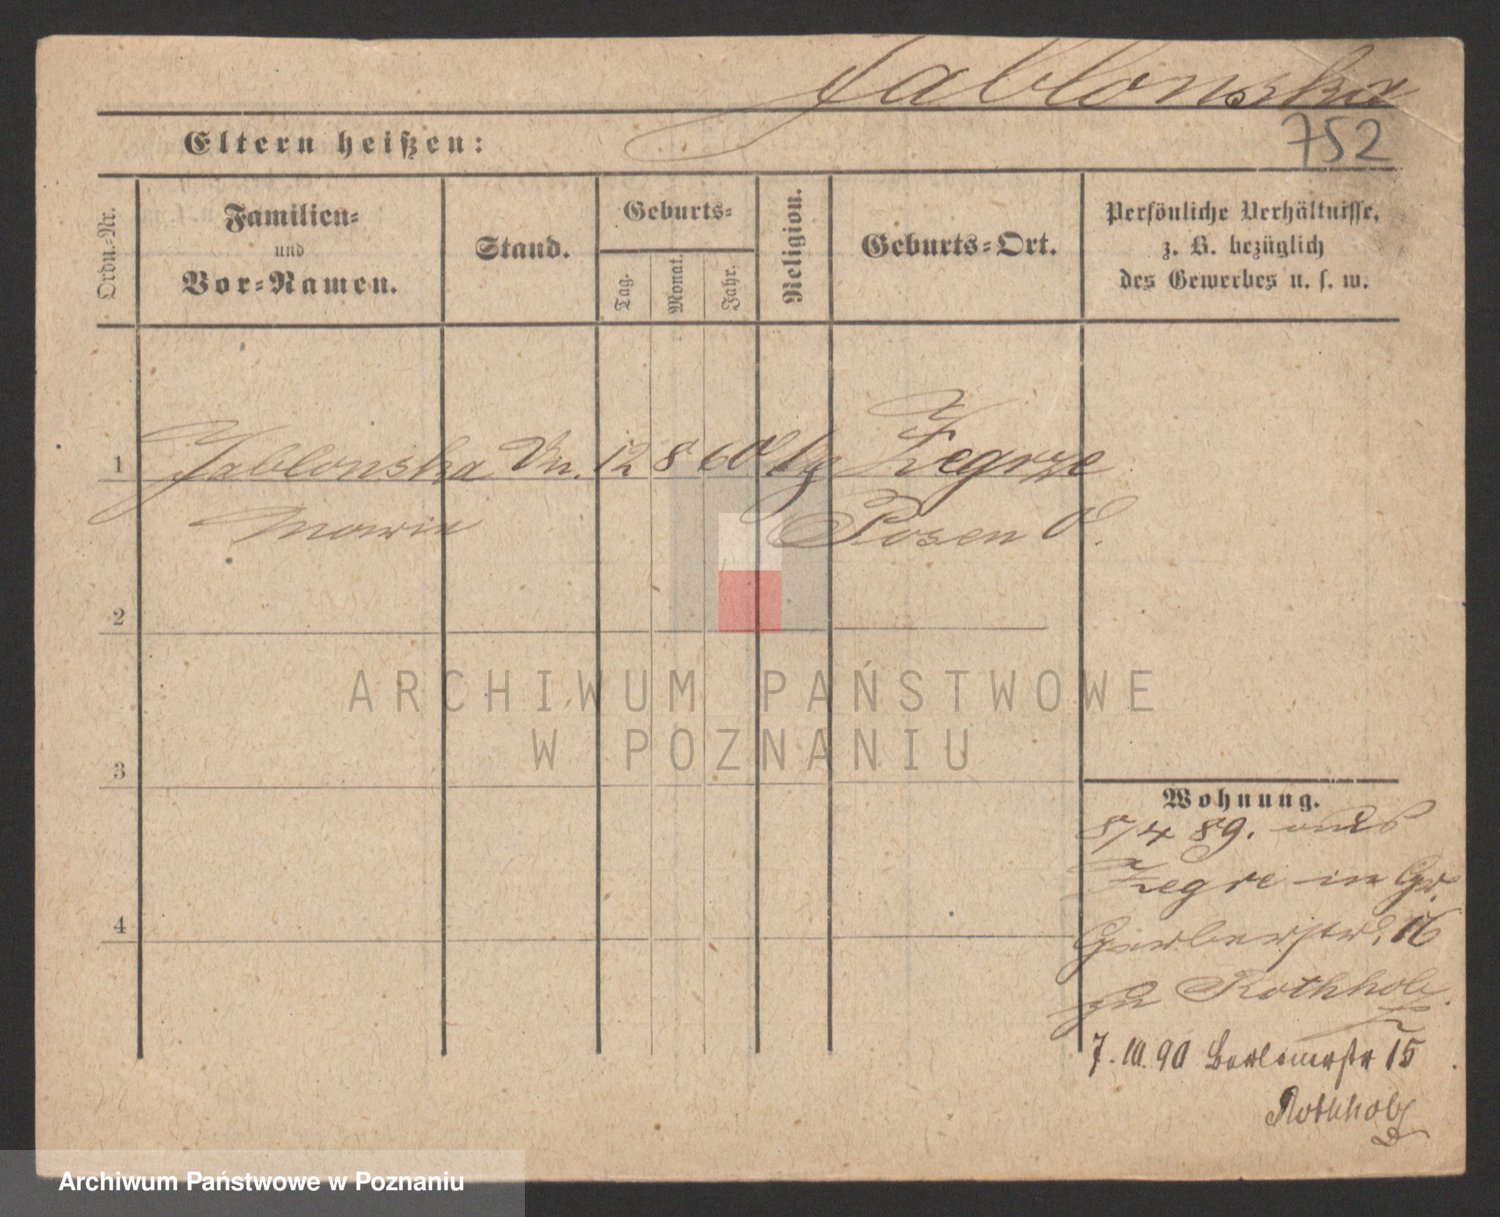 Jablonska
752
Eltern heißen:
Ordn.-Nr.
Familien-
und
Vor-Namen.
Stand.
Geburts-
Tag.
Monat.
Jahr.
Religion.
Geburts-Ort.
Persönliche Verhältnisse,
z. B. bezüglich
des Gewerbes u. s. w.
1 Jablonska 12 8 60 Zegrze
Marie Posen O.
2
3
4
ARCHIWUM PAŃSTWOWE
W POZNANIU
Wohnung.
8/4 89. aus
Zegre in Gr.
Gerberstr. 16
zu Rothholz
7.10.90 Berlinerstr 15
Rothholz
Archiwum Państwowe w Poznaniu